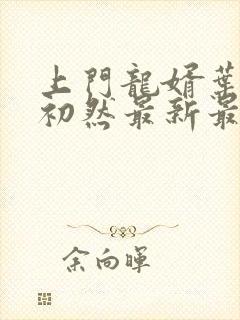 上門龍婿葉
初然最新最
余向暉